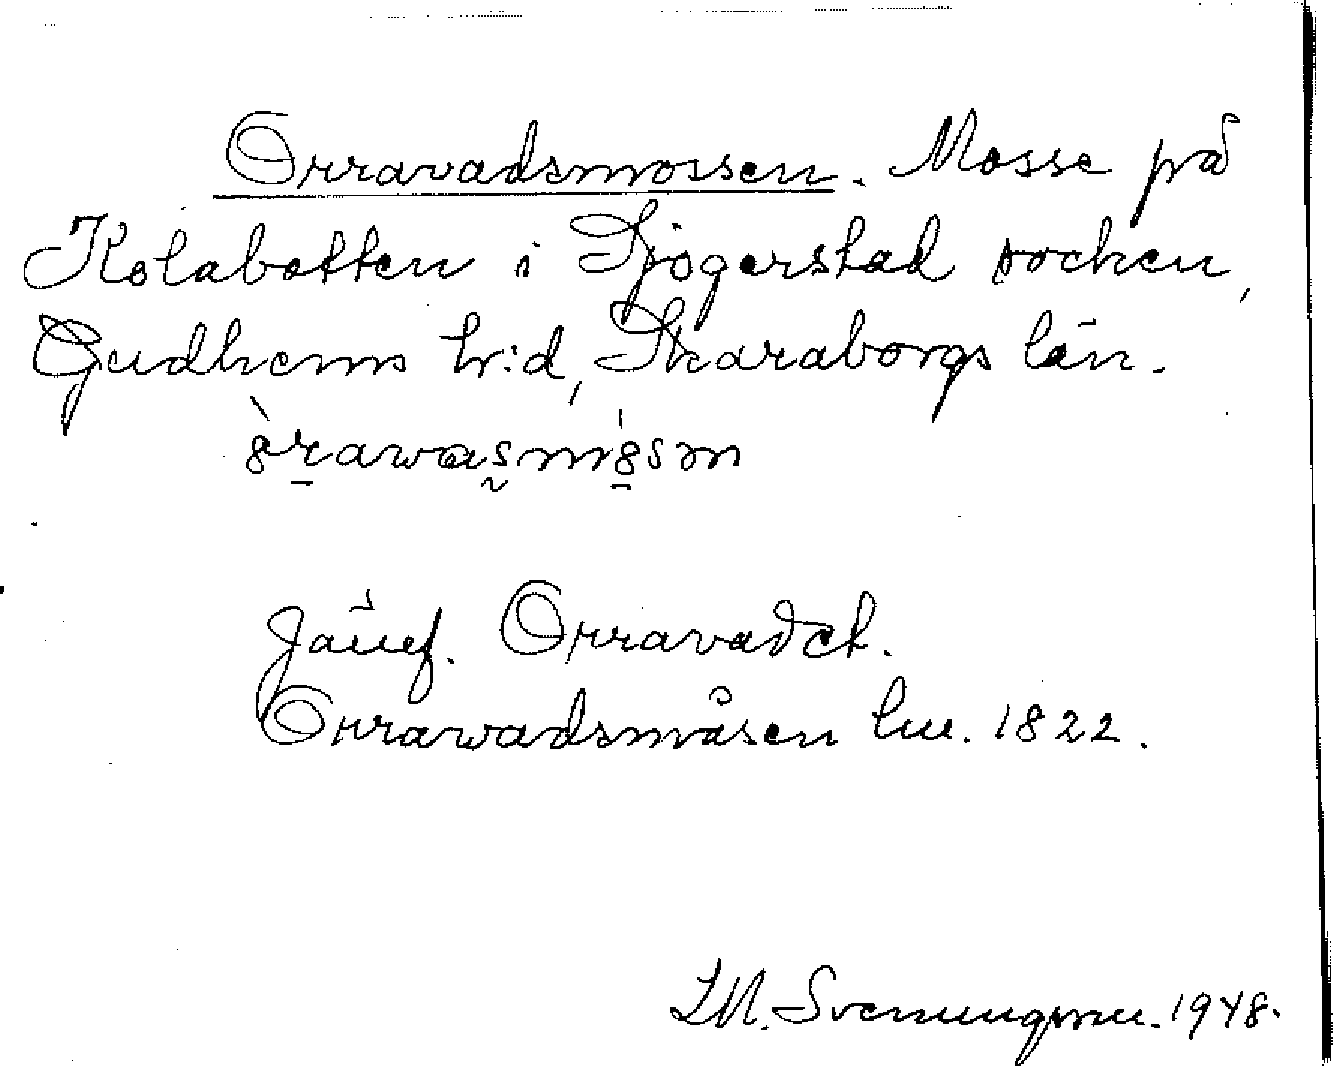 Orravadsmossen. Mosse på
Kolabotten i Sjogerstad socken,
Gudhems hr:d, Skaraborgs län.
Jämf. Orravadet.
Orrawadsmåsen lm. 1822.
Svenungsson. 1948.